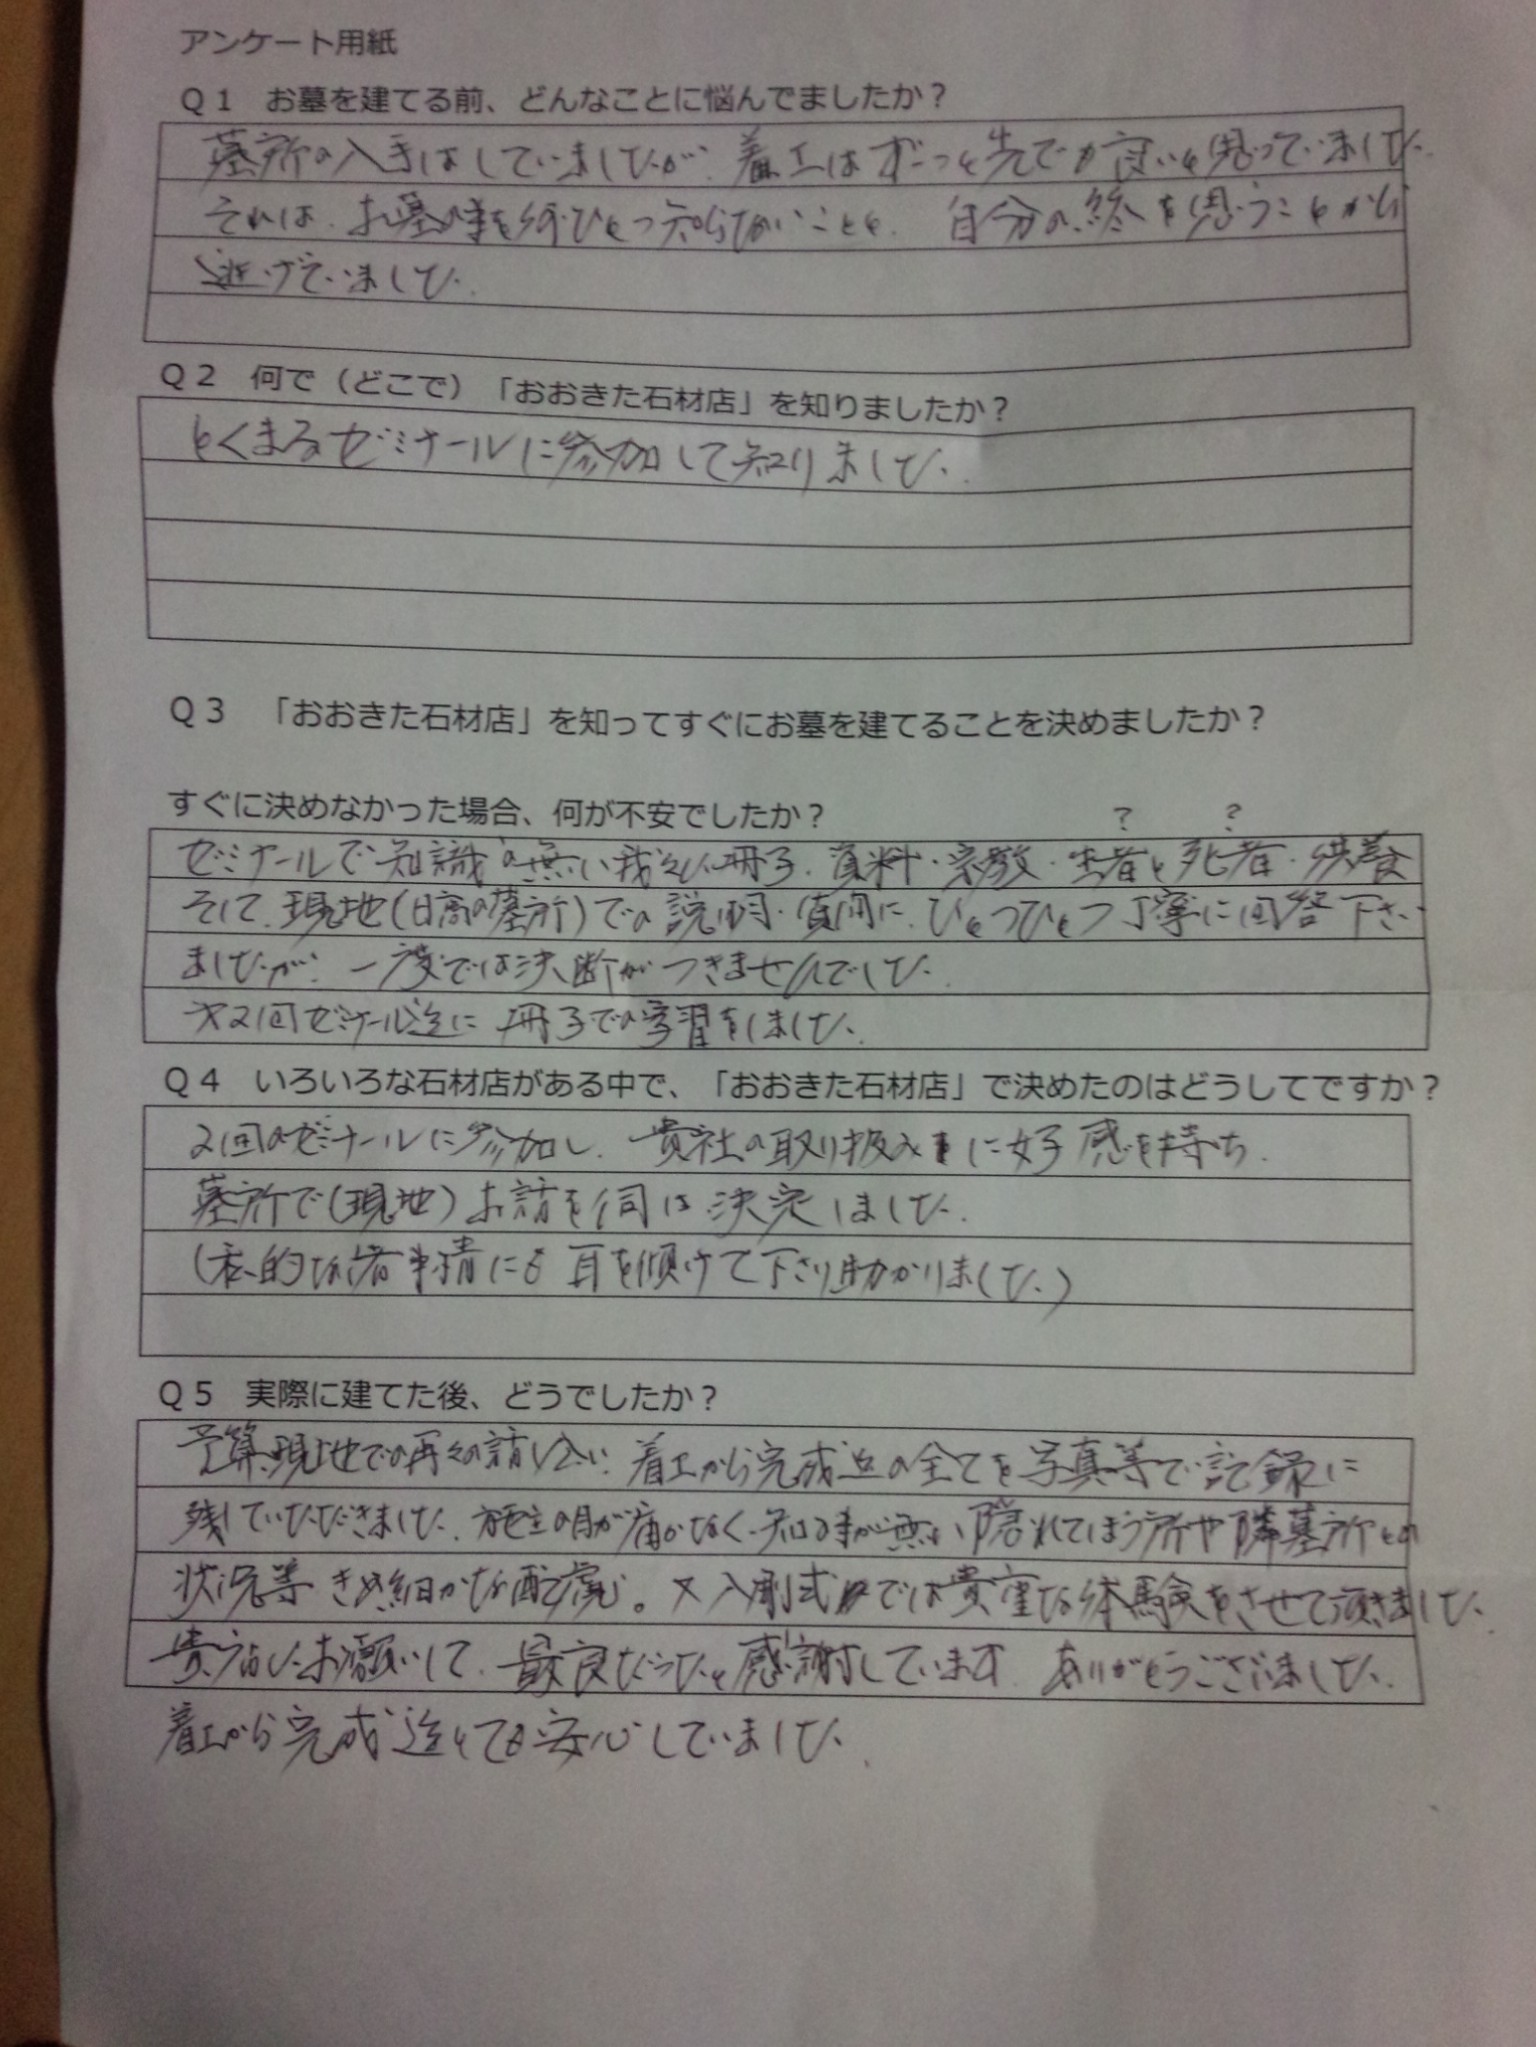 アンケート用紙
Q1 お墓を建てる前、どんなことに悩んでましたか?
墓所の入手はしていましたが、着工はずーっと先でか良いと思っていました
それは、お墓の事を何ひとつ知らないことと、自分の終を思うことから
逃げていました。
Q2 何で(どこで)「おおきた石材店」を知りましたか?
とくまるゼミナールに参加して知りました。
Q3 「おおきた石材店」を知ってすぐにお墓を建てることを決めましたか?
すぐに決めなかった場合、何が不安でしたか?
? ?
ゼミナールで知識の無い我々に冊子、資料・宗教・生者と死者・供養
そして、現地(日高の墓所)での説明・質問に、ひとつひとつ丁寧に回答下さい
ましたが、一度では決断がつきませんでした。
才2回ゼミナール迄に冊子での学習をしました。
Q4 いろいろな石材店がある中で、「おおきた石材店」で決めたのはどうしてですか?
2回のゼミナールに参加し、貴社の取り扱みに好感を持ち、
墓所で(現地)お話を伺は決定しました。
(私的な諸事情にも耳を傾けて下さり助かりました。)
Q5 実際に建てた後、どうでしたか?
予算、現地での再々の話し合い、着工から完成迄の全てを写真等で記録に
残していただきました。施主の目が届かなく、知る事が無い隠れてしまう所や隣墓所との
状況等きめ細かな配慮。又入刷式では貴重な体験をさせて頂きました。
貴店にお願いして、最良だったと感謝しています。ありがとうございました。
着工から完成迄とても安心していました。